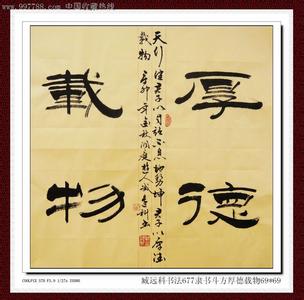 www.997788.com 中国收藏热线
厚德
天行健君子以自强不息地势坤君子以厚德
載物辛卯年金秋臧远科书
載物
COOLPIX
臧远科书法677隶书斗方厚德载物69*69